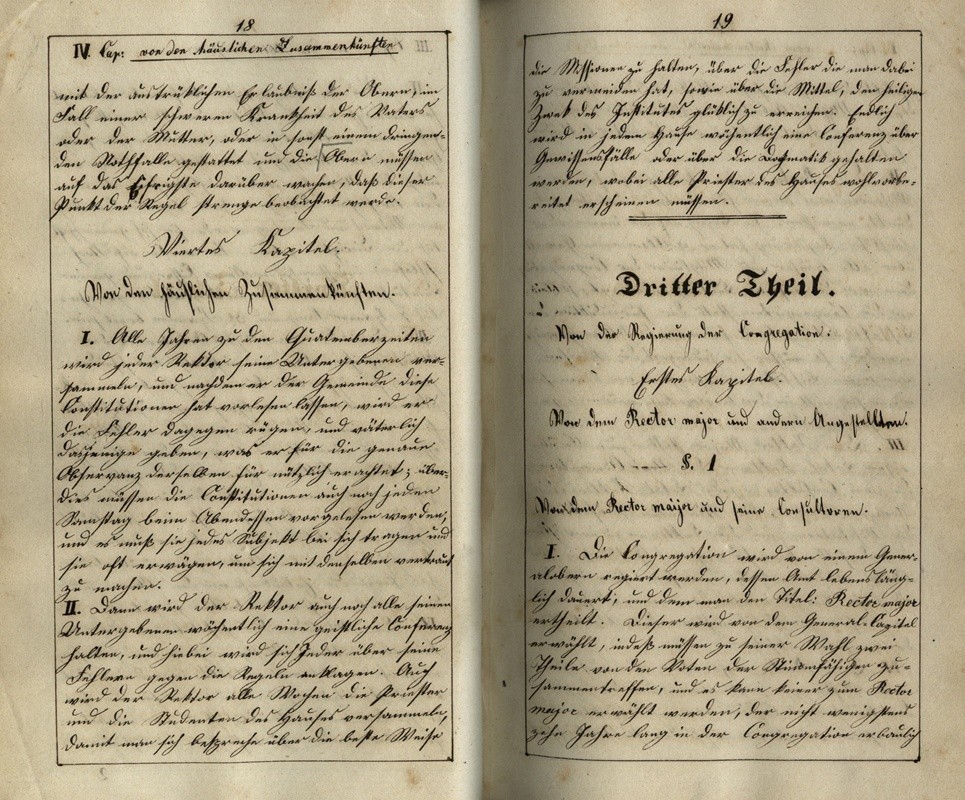 18
IV. Cap: von den häuslichen Zusammenkünften
mit der ausdrüklichen Erlaubniß der Obern, im
Fall einer schweren Krankheit des Vaters
oder der Mutter, oder in sonst einem dringen-
den Nothfalle gestattet und die Obern müssen
auf das Eifrigste darüber wachen, daß dieser
Punkt der Regel strenge beobachtet werde.
Viertes Kapitel.
Von den häuslichen Zusammenkünften.
I. Alle Jahren zu den Quatemberzeiten
wird jeder Rektor seine Untergebenen ver-
sammeln, und nachdem er der Gemeinde diese
Constitutionen hat vorlesen lassen, wird er
die Fehler dagegen rügen, und väterlich
dasjenige geben, was er für die genaue
Observanz derselben für nützlich erachtet; über-
dies müssen die Constitutionen auch noch jeden
Samstag beim Abendessen vorgelesen werden,
und es muß sie jedes Subjekt bei sich tragen und
sie oft erwägen, um sich mit denselben vertraut
zu machen.
II. Dann wird der Rektor auch noch alle seinen
Untergebenen wöchentlich eine geistliche Conferenz
halten, und hiebei wird sich Jeder über seine
Fehlern gegen die Regeln anklagen. Auch
wird der Rektor alle Wochen die Priester
und die Studenten des Hauses versammeln,
damit man sich bespreche über die beste Weise
19
die Missionen zu halten, über die Fehler die man dabei
zu vermeiden hat, sowie über die Mittel, den heiligen
Zwek des Institutes glüklich zu erreichen. Endlich
wird in jedem Hause wöchentlich eine Conferenz über
Gewissensfälle oder über die Dogmatik gehalten
werden, wobei alle Priester des Hauses wohlvorbe-
reitet erscheinen müssen.
Dritter Theil.
Von der Regierung der Congregation.
Erstes Kapitel.
Von dem Rector major und andern Angestellten.
§. 1
Von dem Rector major und seine Consultoren.
I. Die Congregation wird von einem Gener-
alobern regiert werden, dessen Amt lebensläng-
lich dauert, und dem man den Titel: Rector major
ertheilt. Dieser wird von dem General-Capitel
erwählt, indeß müssen zu seiner Wahl zwei
Theile von den Voten der Stimmfähigen zu-
sammentreffen, und es kann keiner zum Rector
major erwählt werden, der nicht wenigstens
zehn Jahre lang in der Congregation erbaulich